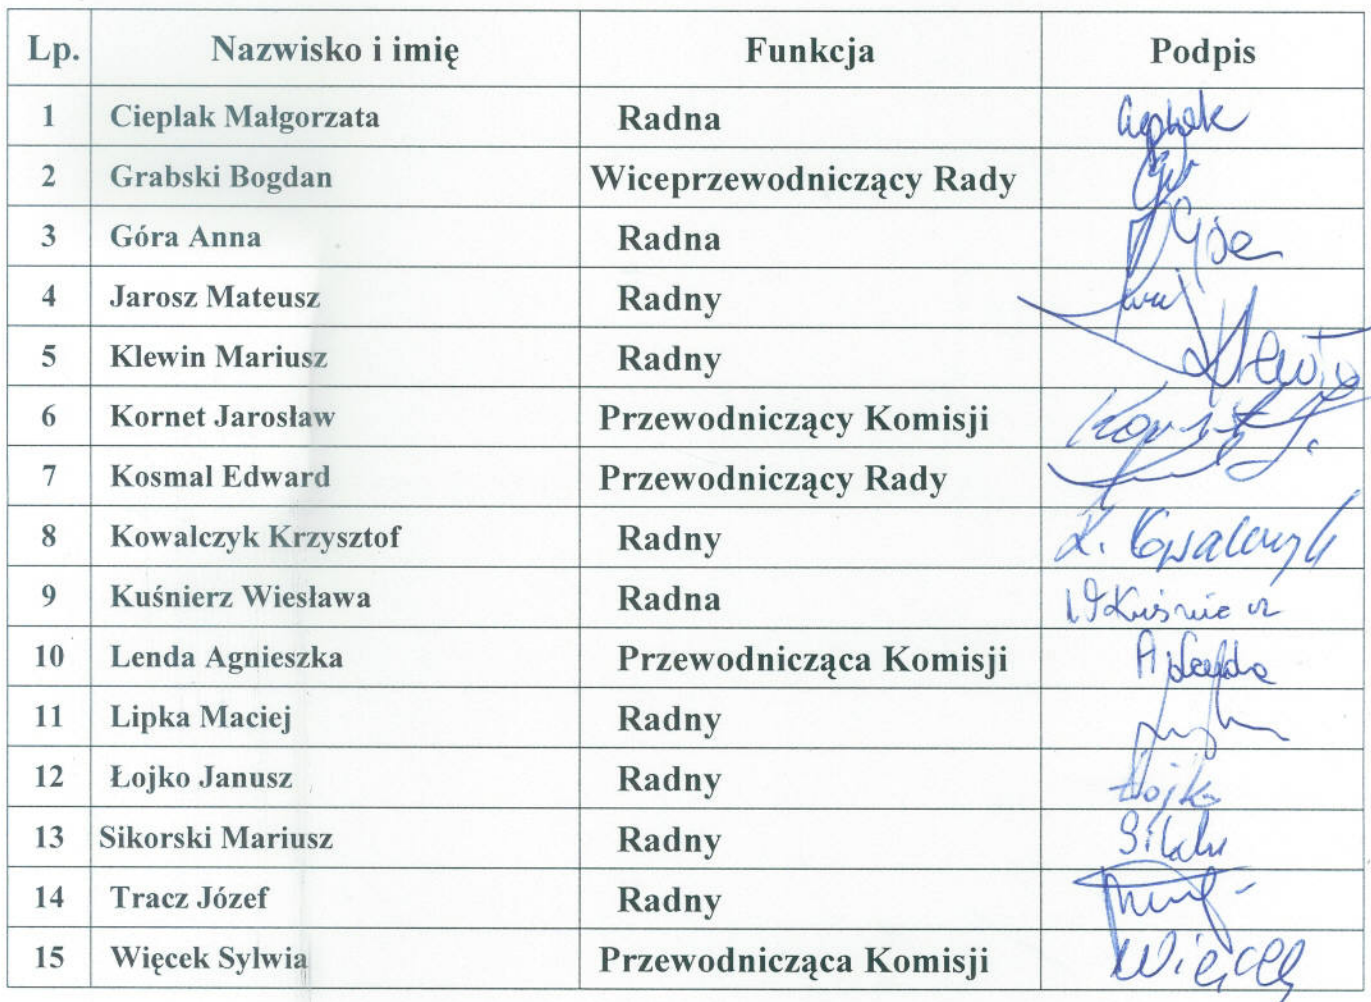 Lp. Nazwisko i imię Funkcja Podpis
1 Cieplak Małgorzata Radna
2 Grabski Bogdan Wiceprzewodniczący Rady
3 Góra Anna Radna
4 Jarosz Mateusz Radny
5 Klewin Mariusz Radny
6 Kornet Jarosław Przewodniczący Komisji
7 Kosmal Edward Przewodniczący Rady
8 Kowalczyk Krzysztof Radny K. Kowalczyk
9 Kuśnierz Wiesława Radna W Kuśnierz
10 Lenda Agnieszka Przewodnicząca Komisji
11 Lipka Maciej Radny
12 Łojko Janusz Radny Łojko
13 Sikorski Mariusz Radny
14 Tracz Józef Radny
15 Więcek Sylwia Przewodnicząca Komisji Więcek